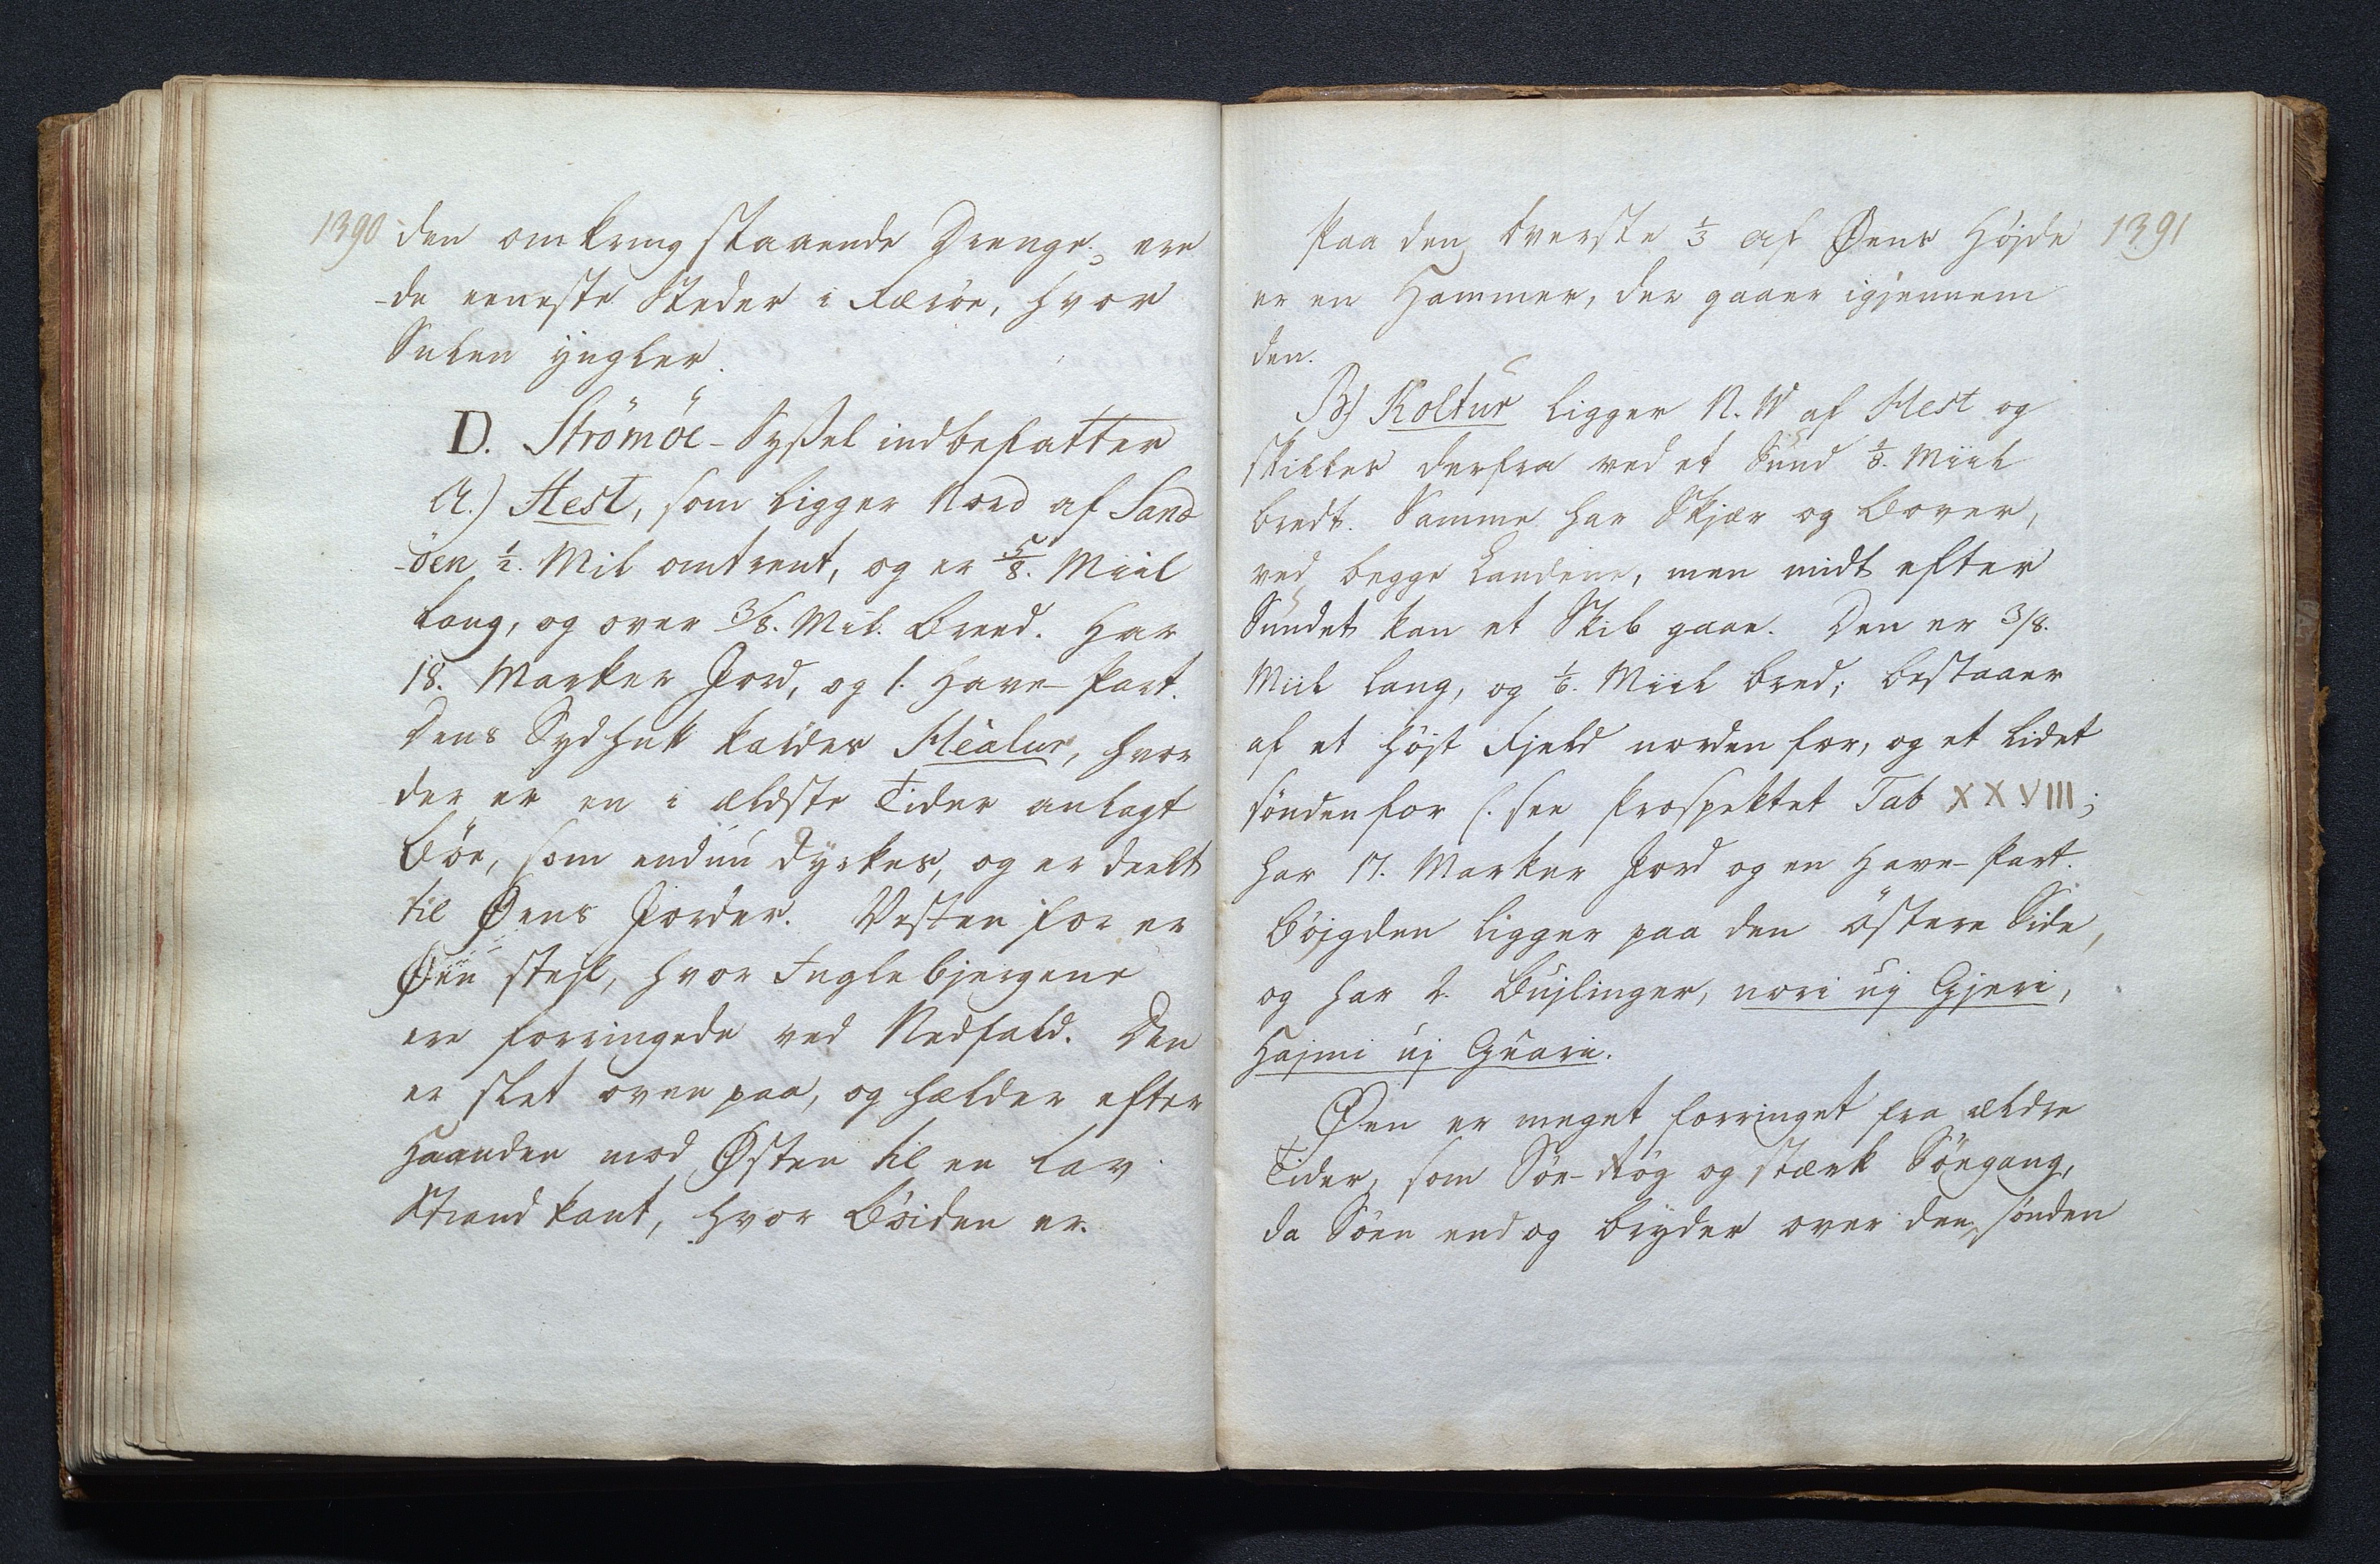 1390 den omkring staaende Drenge, ere
de eeneste Steder i Færöe, hvor
Sulen yngler.
D. Strömöe-Syßel indbefatter
A.) Hest, som ligger Nord af Sand-
öen ½. Mil omtrent, og er 5/8. Miil
lang, og over 3/8. Mil. breed. Har
18. Marker Jord, og 1. Have-Part.
Dens Sydhuk kaldes Héalur, hvor
der er en i ældste Tider anlagt
Böe, som endnu dyrkes, og er deelt
til Øens Jorder. Vesten for er
Øen stejl, hvor Fuglebjergene
ere forringede ved Nedfald. Den
er slet oven paa, og helder efter
Haanden mod Østen til en lav
Strandkant, hvor Böiden er.
Paa den överste 1/3 af Øens Höjde 1391
er en Hammer, der gaaer igjennem
den.
B) Koltur ligger N. W af Hest og
skilles derfra ved et Sund Miil
bredt. Samme har Skjær og Boer,
ved begge Landene, men midt efter
Sundet kan et Skib gaae. Den er 3/8.
Miil lang, og 1/6. Miil bred; bestaaer
af et höjt Fjeld norden for, og et lidet
sönden for /: see Prospektet Tab XXVIII;
har 17. Marker Jord og en Have-Part.
Böjgden ligger paa den östere Side,
og har 2. Bujlinger, nori uj Gjeri,
Hajmi uj Gueri.
Øen er meget forringet fra ældre
Tider, som Söe-Rög og stærk Söegang,
da Söen endog bryder over den, sönden